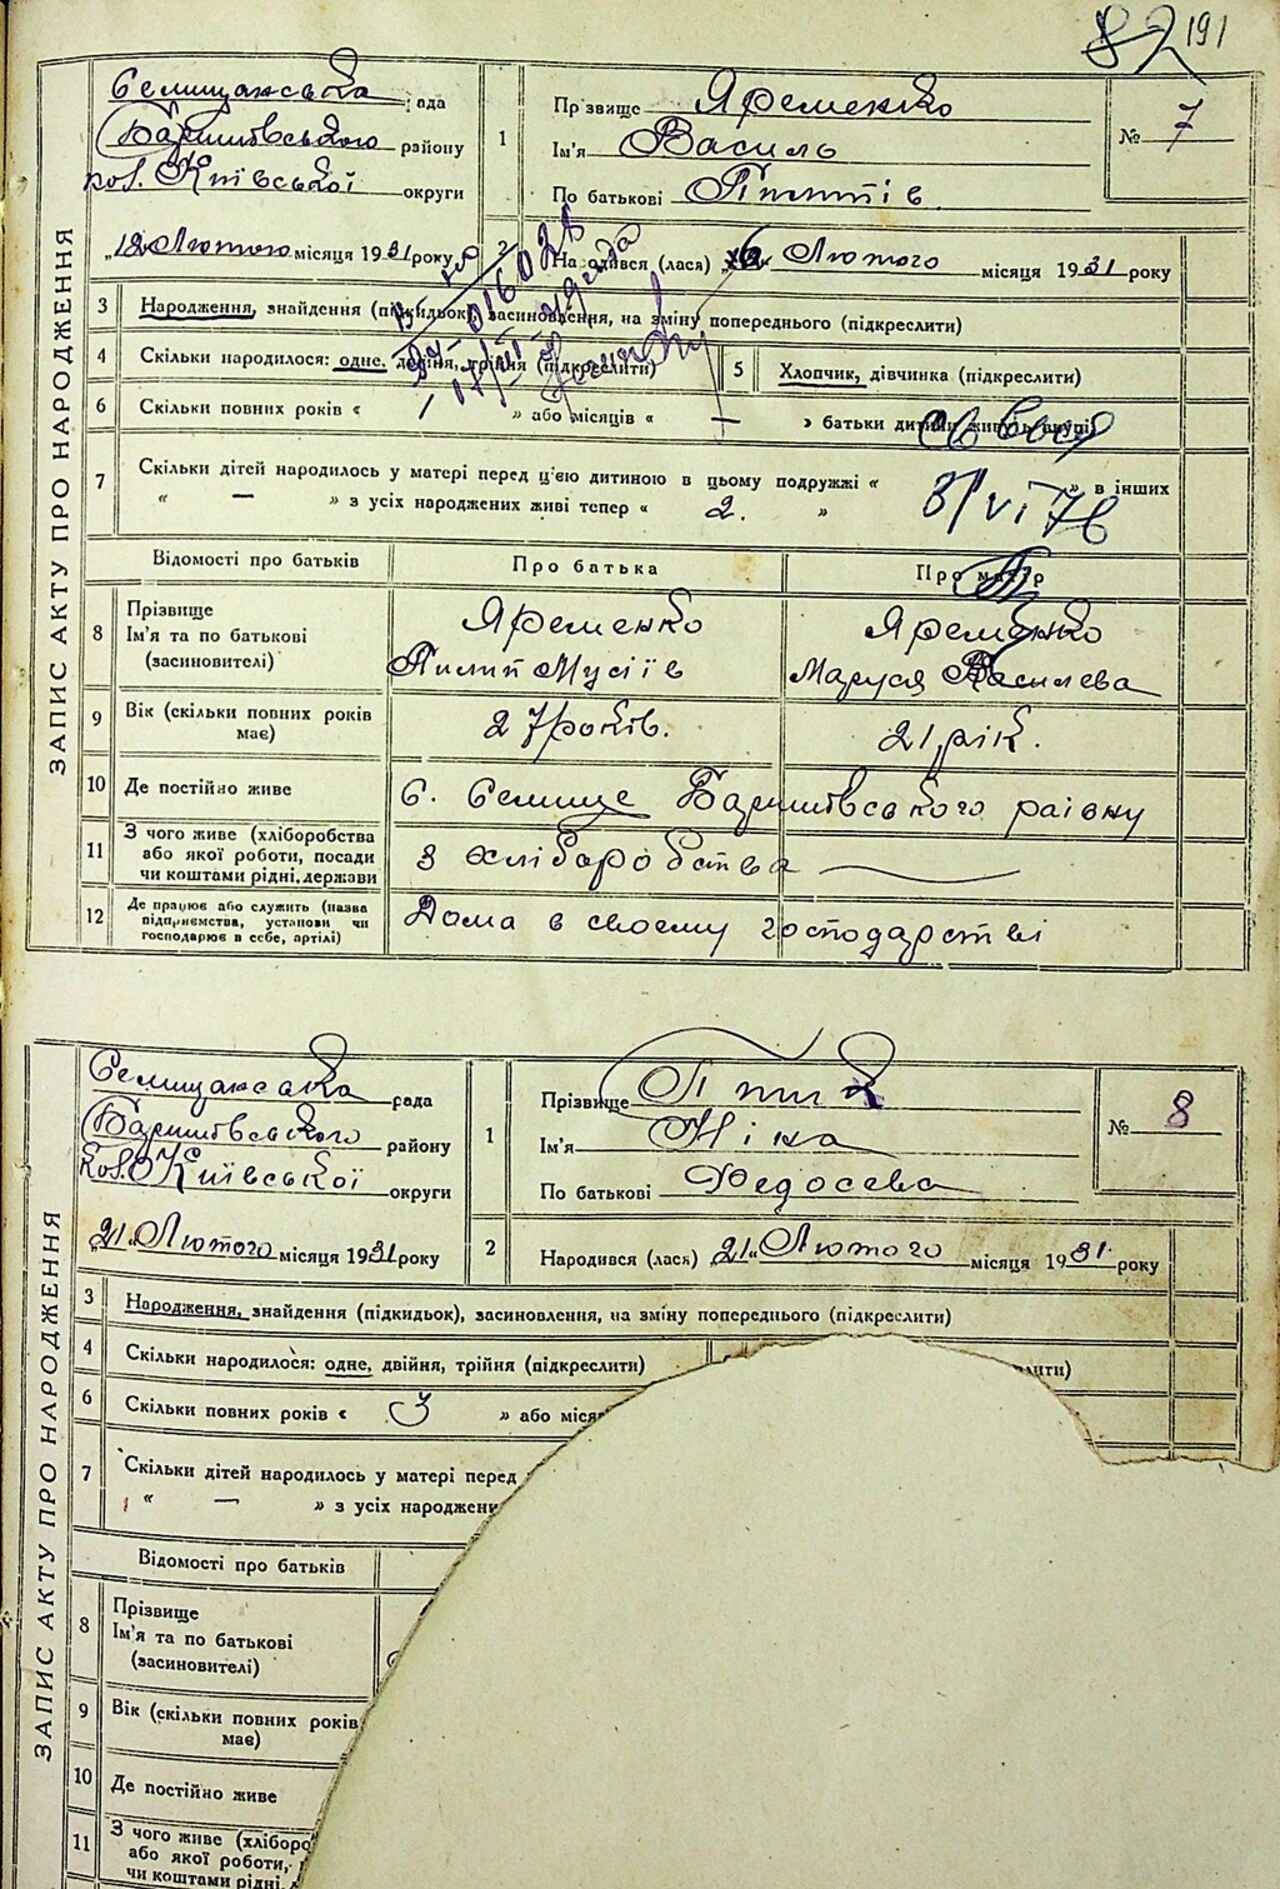 82 191
ЗАПИС АКТУ ПРО НАРОДЖЕННЯ
Селищанська рада
Баришівського району
кол. Київської округи
"12" Лютого місяця 1931 року
1
Прізвище Яременко
Ім'я Василь
По батькові Пилипів
№ 7
2 Народився (лася) Лютого місяця 1931 року
3 Народження, знайдення (підкидьок), засиновлення, на зміну попереднього (підкреслити)
4 Скільки народилося: одне, двійня, трійня (підкреслити)
5 Хлопчик, дівчинка (підкреслити)
6 Скільки повних років « » або місяців « — » батьки дитини живуть вкупі
7 Скільки дітей народилось у матері перед ц'ею дитиною в цьому подружжі « » в інших
« — » з усіх народжених живі тепер « 2. »
3/VI 76
Відомості про батьків Про батька Про матір
8 Прізвище
Ім'я та по батькові
(засиновителі)
Яременко
Пилип Мусіїв
Яременко
Маруся Василева
9 Вік (скільки повних років має)
27 років.
21 рік.
10 Де постійно живе
С. Селище Баришівського раівну
11 З чого живе (хліборобства
або якої роботи, посади
чи коштами рідні, держави
З хліборобства
12 Де працює або служить (назва
підприємства, установи чи
господарює в себе, артілі)
Дома в своему господарстві
ЗАПИС АКТУ ПРО НАРОДЖЕННЯ
Селищанська рада
Баришівського району
кол. Київської округи
"21" Лютого місяця 1931 року
1
Прізвище
Ім'я Ніна
По батькові Федосева
№ 8
2 Народився (лася) "21" Лютого місяця 1931 року
3 Народження, знайдення (підкидьок), засиновлення, на зміну попереднього (підкреслити)
4 Скільки народилося: одне, двійня, трійня (підкреслити)
лити)
6 Скільки повних років « 3 » або міся
7 Скільки дітей народилось у матері перед
« — » з усіх народжени
Відомості про батьків
8 Прізвище
Ім'я та по батькові
(засиновителі)
9 Вік (скільки повних років
має)
10 Де постійно живе
11 З чого живе (хліборо
або якої роботи,
чи коштами рідні,